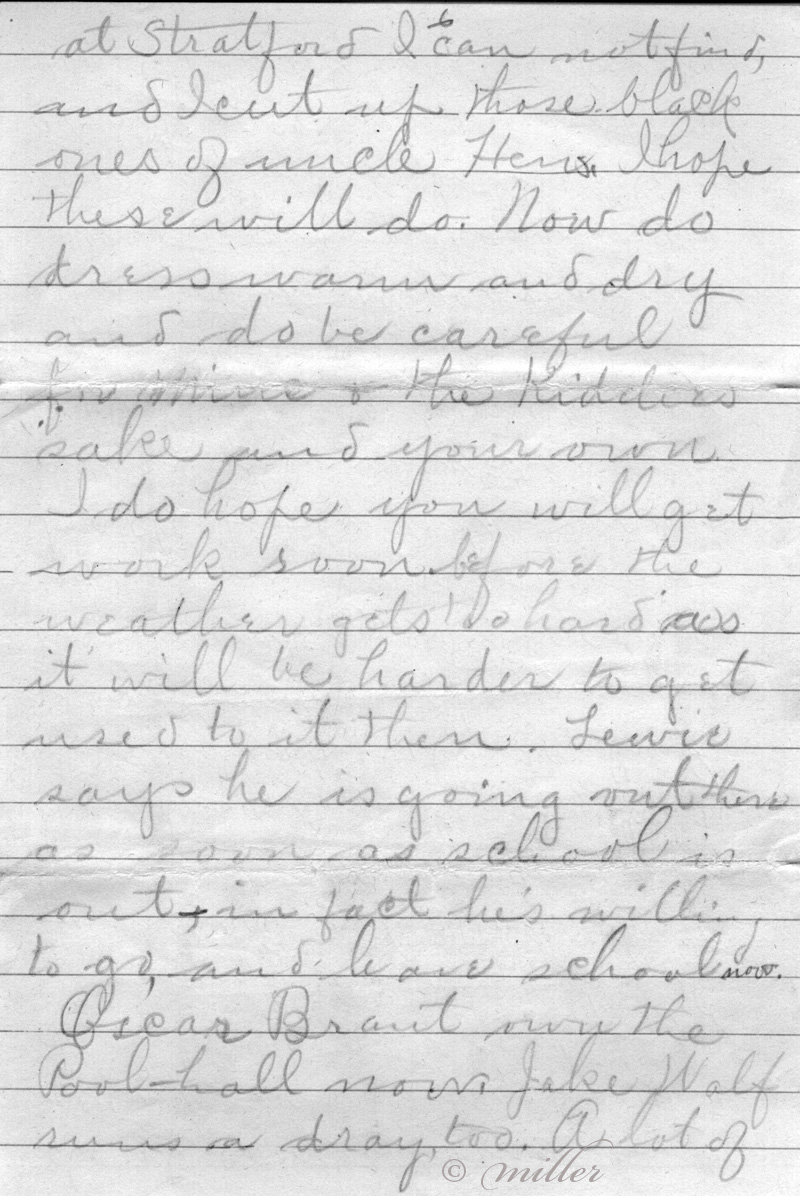 at Stratford I can not find,
and I cut up those black
ones of uncle Hens. I hope
these will do. Now do
dress warm and dry
and do be careful
for mine & the Kiddies
sake and your own.
I do hope you will get
work soon before the
weather gets to hard as
it will be harder to get
used to it then. Lewie
says he is going out there
as soon as school is
out, in fact he's willing
to go, and leave school now.
Oscar Brant own the
Pool-hall now. Jake Walf
runs a dray, too. A lot of
© miller